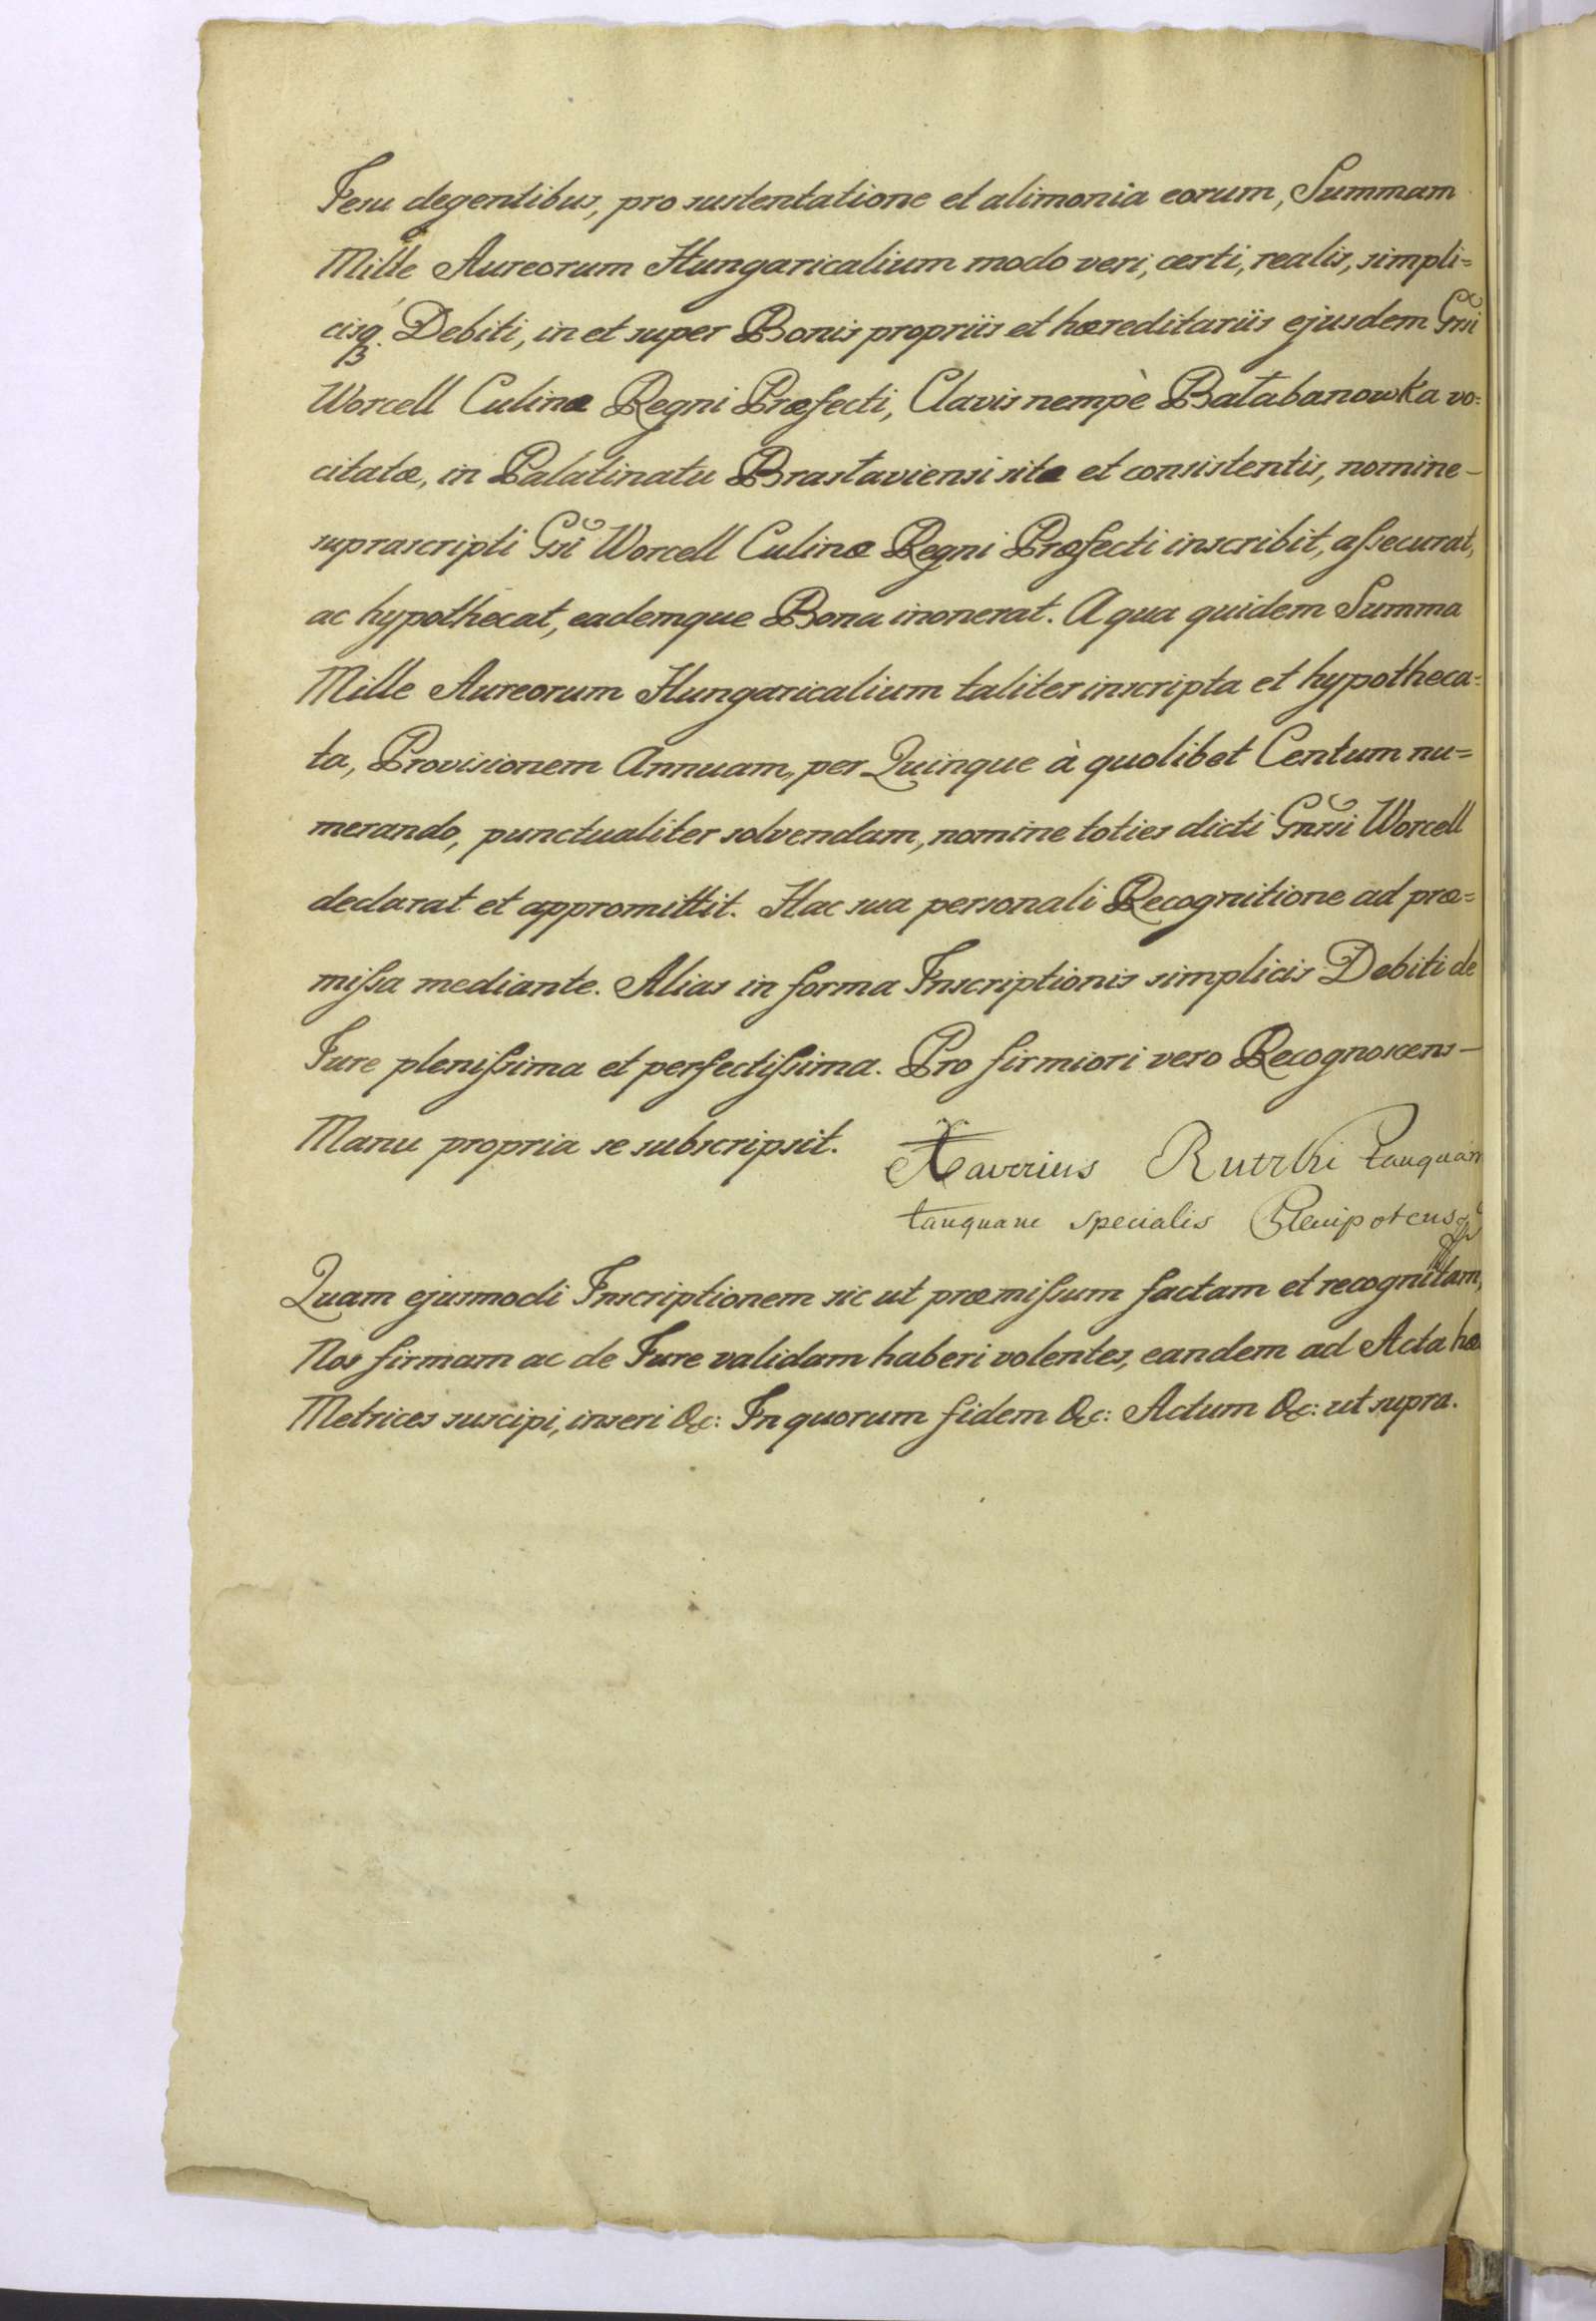 Jesu degentibus, pro sustentatione et alimonia eorum, Summam
Mille Aureorum Hungaricalium modo veri, certi, realis, simpli=
cisq. Debiti, in et super Bonis propriis et hæreditariis ejusdem Gnsi
Worcell Culinæ Regni Præfecti, Clavis nempè Bałabanowka vo=
citatæ, in Palatinatu Brasłaviensi sitæ et consistentis, nomine
suprascripti Gsi Worcell Culinæ Regni Præfecti inscribit, assecurat,
ac hypothecat, eademque Bona inonerat. A qua quidem Summa
Mille Aureorum Hungaricalium taliter inscripta et hypotheca=
ta, Provisionem Annuam, per Quinque à quolibet Centum nu=
merando, punctualiter solvendam, nomine toties dicti Gnrsi Worcell
declarat et appromittit. Hac sua personali Recognitione ad præ=
missa mediante. Alias in forma Inscriptionis simplicis Debiti de
Jure plenissima et perfectissima. Pro firmiori vero Recognoscens
Manu propria se subscripsit. Xaverius Rutski tanquam
tanquam specialis Plenipotens
Quam ejusmodi Inscriptionem sic ut præmissum factam et recognitam,
Nos firmam ac de Jure validam haberi volentes, eandem ad Acta hæ
Metrices suscipi, inseri &c: In quorum fidem &c: Actum &c: ut supra.